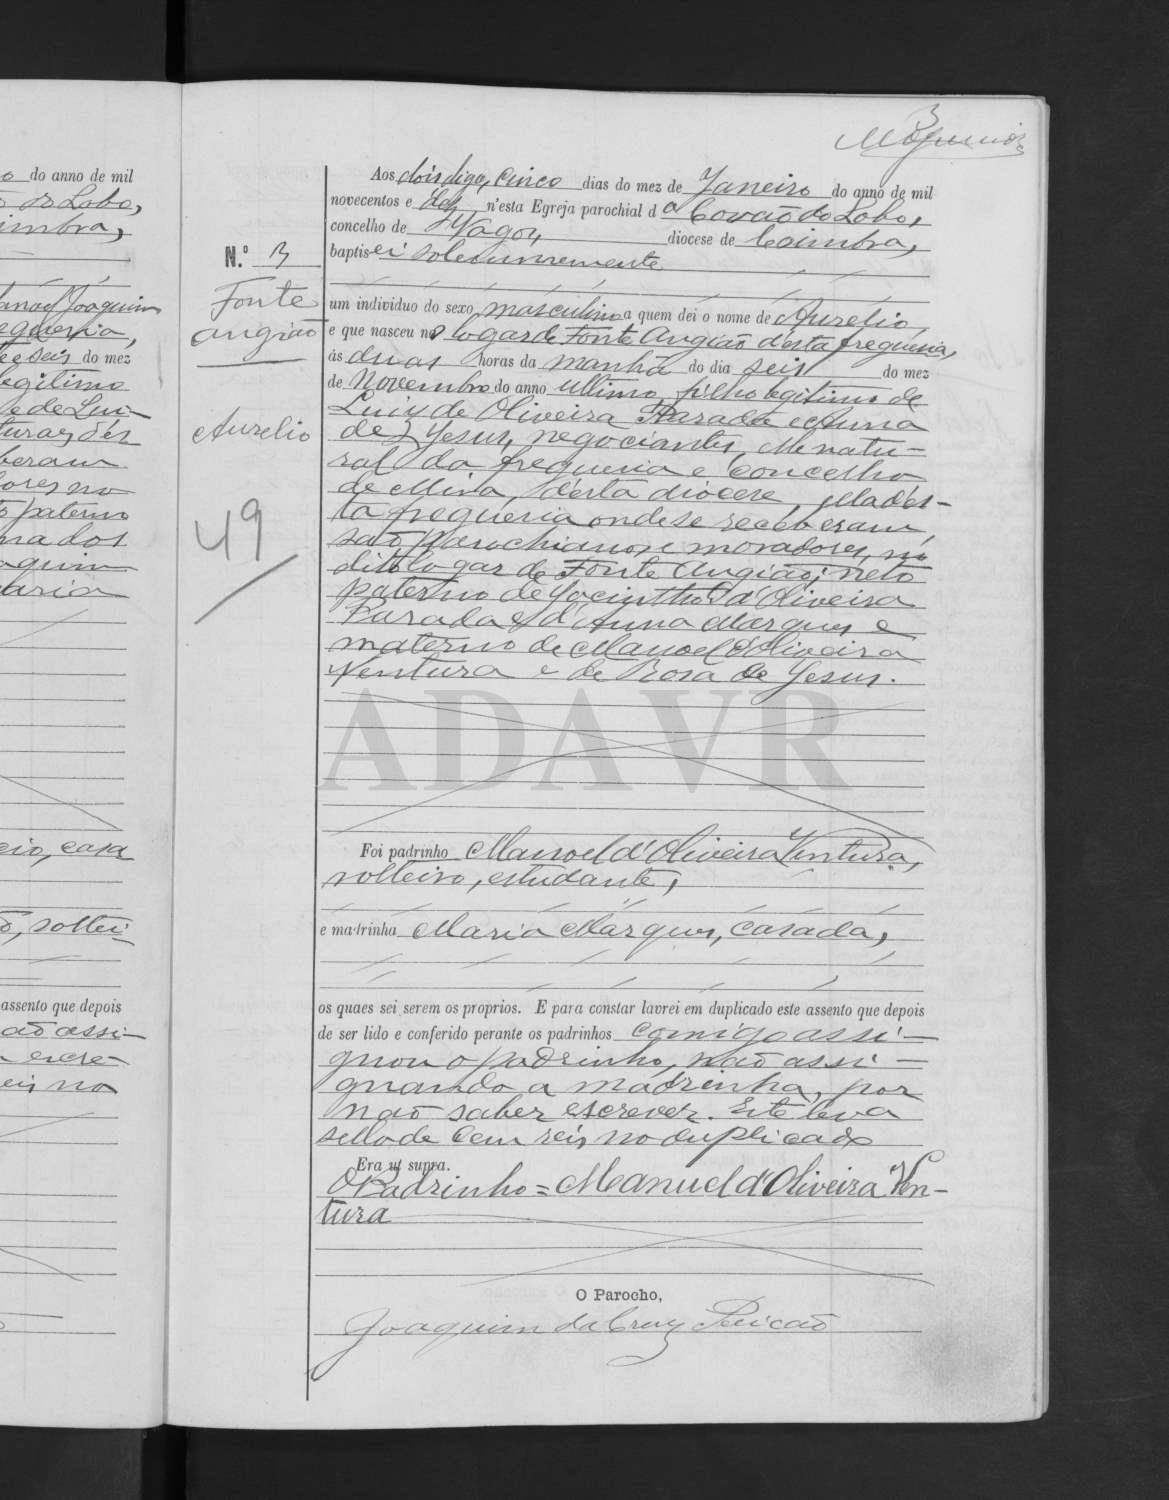 3
o do anno de mil
do Lobo,
imbra,
Joaquim
do mez
legitimo
e de Lui-
beram
ores no
paterno
aquim
aria
cio, casa
soltei-
assento que depois
ão assi-
escre-
eis no
N.º 3
Fonte
Angião
Aurelio
49
Aos dois digo, cinco dias do mez de Janeiro do anno de mil
novecentos e dez n'esta Egreja parochial d a Covão do Lobo,
concelho de Vagos, diocese de Coimbra,
baptisei solemnemente
um individuo do sexo masculino a quem dei o nome de Aurelio,
e que nasceu no logar de Fonte Angião d'esta freguesia,
ás duas horas da manhã do dia seis do mez
de Novembro do anno ultimo, filho legitimo de
Luiz de Oliveira Parada e Anna
de Jesus, negociantes, elle natu-
ral da freguesia e concelho
de Mira, d'esta diocese, ella d'es-
ta freguesia onde se receberam,
são parochianos e moradores, no
dito logar de Fonte Angião; neto
paterno de Jacintho d'Oliveira
Parada e d'Anna Marques e
materno de Manoel d'Oliveira
Ventura e de Rosa de Jesus.
ADAVR
Foi padrinho Manoel d'Oliveira Ventura,
solteiro, estudante,
e madrinha Maria Marques, casada,
os quaes sei serem os proprios. E para constar lavrei em duplicado este assento que depois
de ser lido e conferido perante os padrinhos comigo assi-
gnou o padrinho, não assi-
gnando a madrinha, por
não saber escrever. Este leva
sello de cem reis no duplicado
Era ut supra.
O Padrinho = Manuel d'Oliveira Ven-
tura
O Parocho,
Joaquim da Cruz